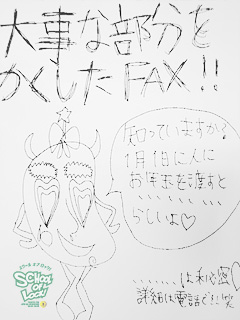 大事な部分を
かくしたFAX!!
知っていますか?
1月1日に人に
お年玉を渡すと
、、、、、、、、
らしいよ♡
SCHOOL
OF
LOCK!
........は秘密♡
詳細は電話で!!笑